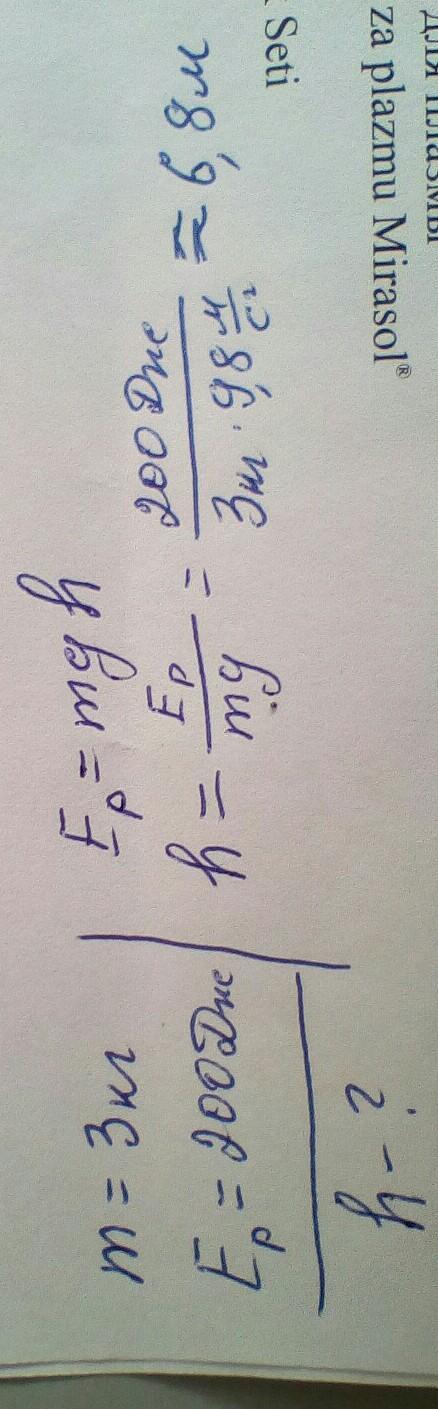 для плазмы
za plazmu Mirasol®
Seti
m = 3 кг
Eₚ = 200 Дж
h - ?
Eₚ = mgh
h = Eₚ/mg = 200 Дж/3 кг · 9,8 м/с² ≈ 6,8 м